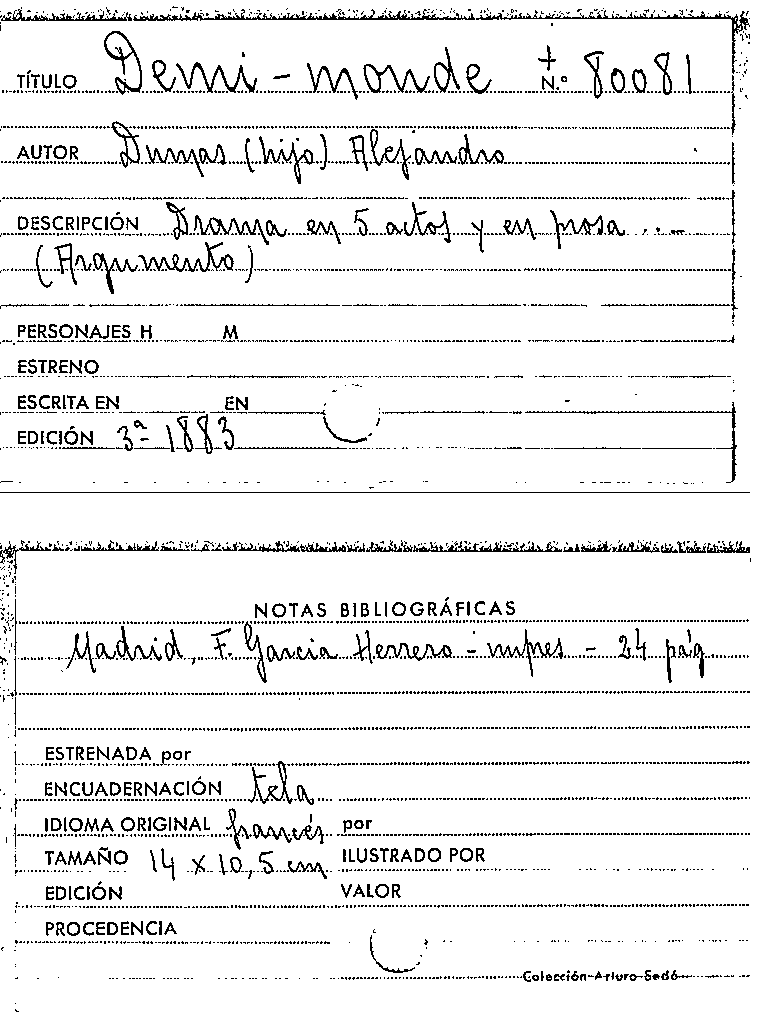 TÍTULO Demi-monde + N.º 80081
AUTOR Dumas (hijo) Alejandro
DESCRIPCIÓN Drama en 5 actos y en prosa ...
(Argumento)
PERSONAJES H M
ESTRENO
ESCRITA EN EN
EDICIÓN 3ª 1883
NOTAS BIBLIOGRÁFICAS
Madrid, F. Garcia Herrero - impres - 24 pág
ESTRENADA por
ENCUADERNACIÓN tela
IDIOMA ORIGINAL francés por
TAMAÑO 14 x 10,5 cm ILUSTRADO POR
EDICIÓN VALOR
PROCEDENCIA
Colección Arturo Sedó